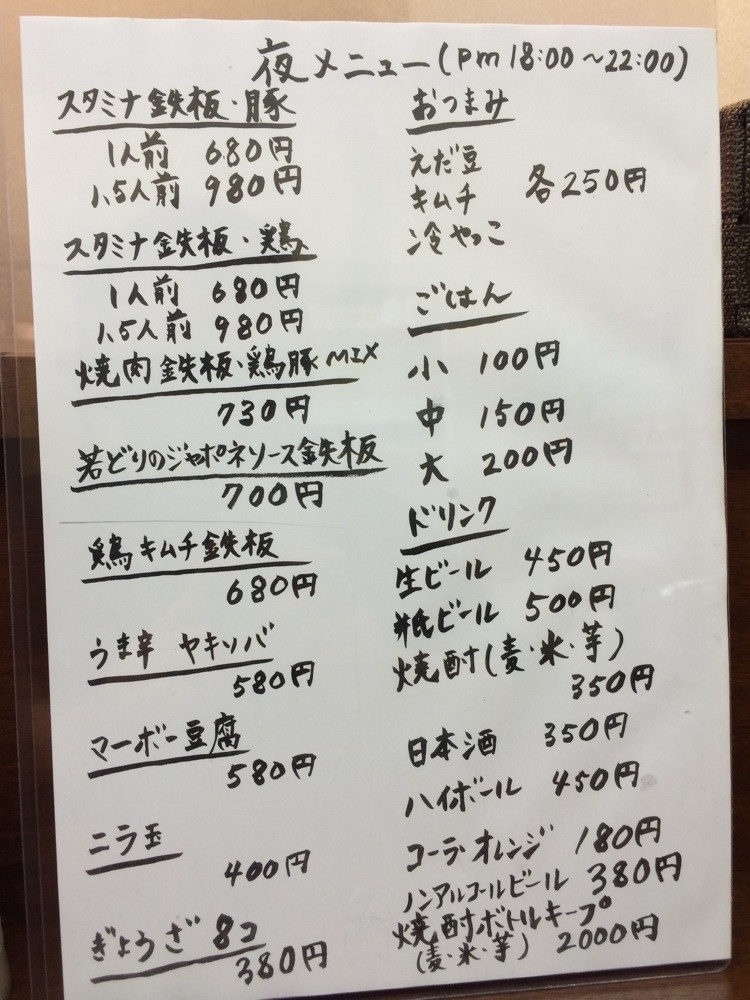 夜メニュー(pm 18:00～22:00)
スタミナ鉄板・豚
1人前 680円
1.5人前 980円
スタミナ鉄板・鶏
1人前 680円
1.5人前 980円
焼肉鉄板・鶏豚MIX
730円
若どりのジャポネソース鉄板
700円
鶏キムチ鉄板
680円
うま辛 ヤキソバ
580円
マーボー豆腐
580円
ニラ玉
400円
ぎょうざ 8コ
380円
おつまみ
えだ豆
キムチ 各250円
冷やっこ
ごはん
小 100円
中 150円
大 200円
ドリンク
生ビール 450円
瓶ビール 500円
焼酎(麦・米・芋)
350円
日本酒 350円
ハイボール 450円
コーラ・オレンジ 180円
ノンアルコールビール 380円
焼酎ボトルキープ
(麦・米・芋) 2000円